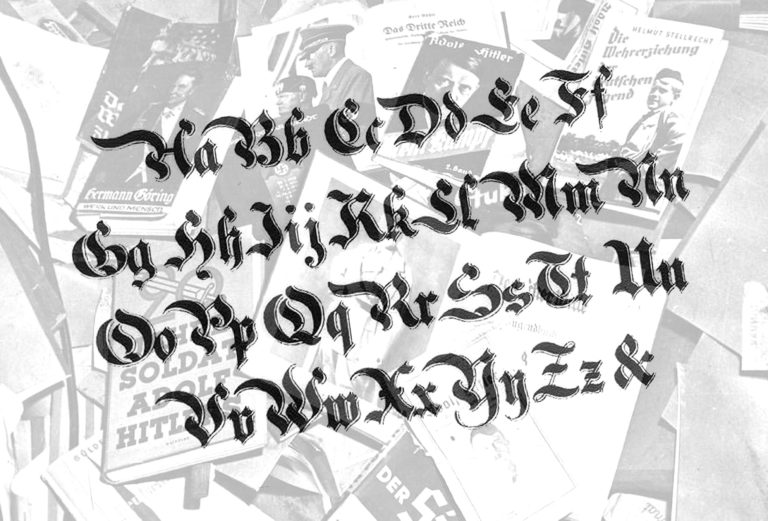 Aa Bb Cc Dd Ee Ff
Gg Hh Iij Kk Ll Mm Nn
Oo Pp Qq Rr Ss Tt Uu
Vv Ww Xx Yy Zz &
Das Dritte Reich
Adolf Hitler
HELMUT STELLRECHT
Die
Wehrerziehung
Hermann Göring
WERK UND MENSCH
SOLDAT
ADOLF
HITLER
DER